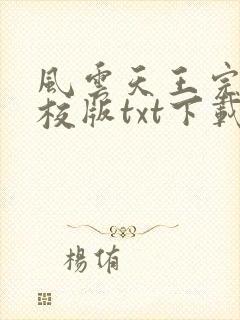 風雲天王完
校版txt下載
楊侑